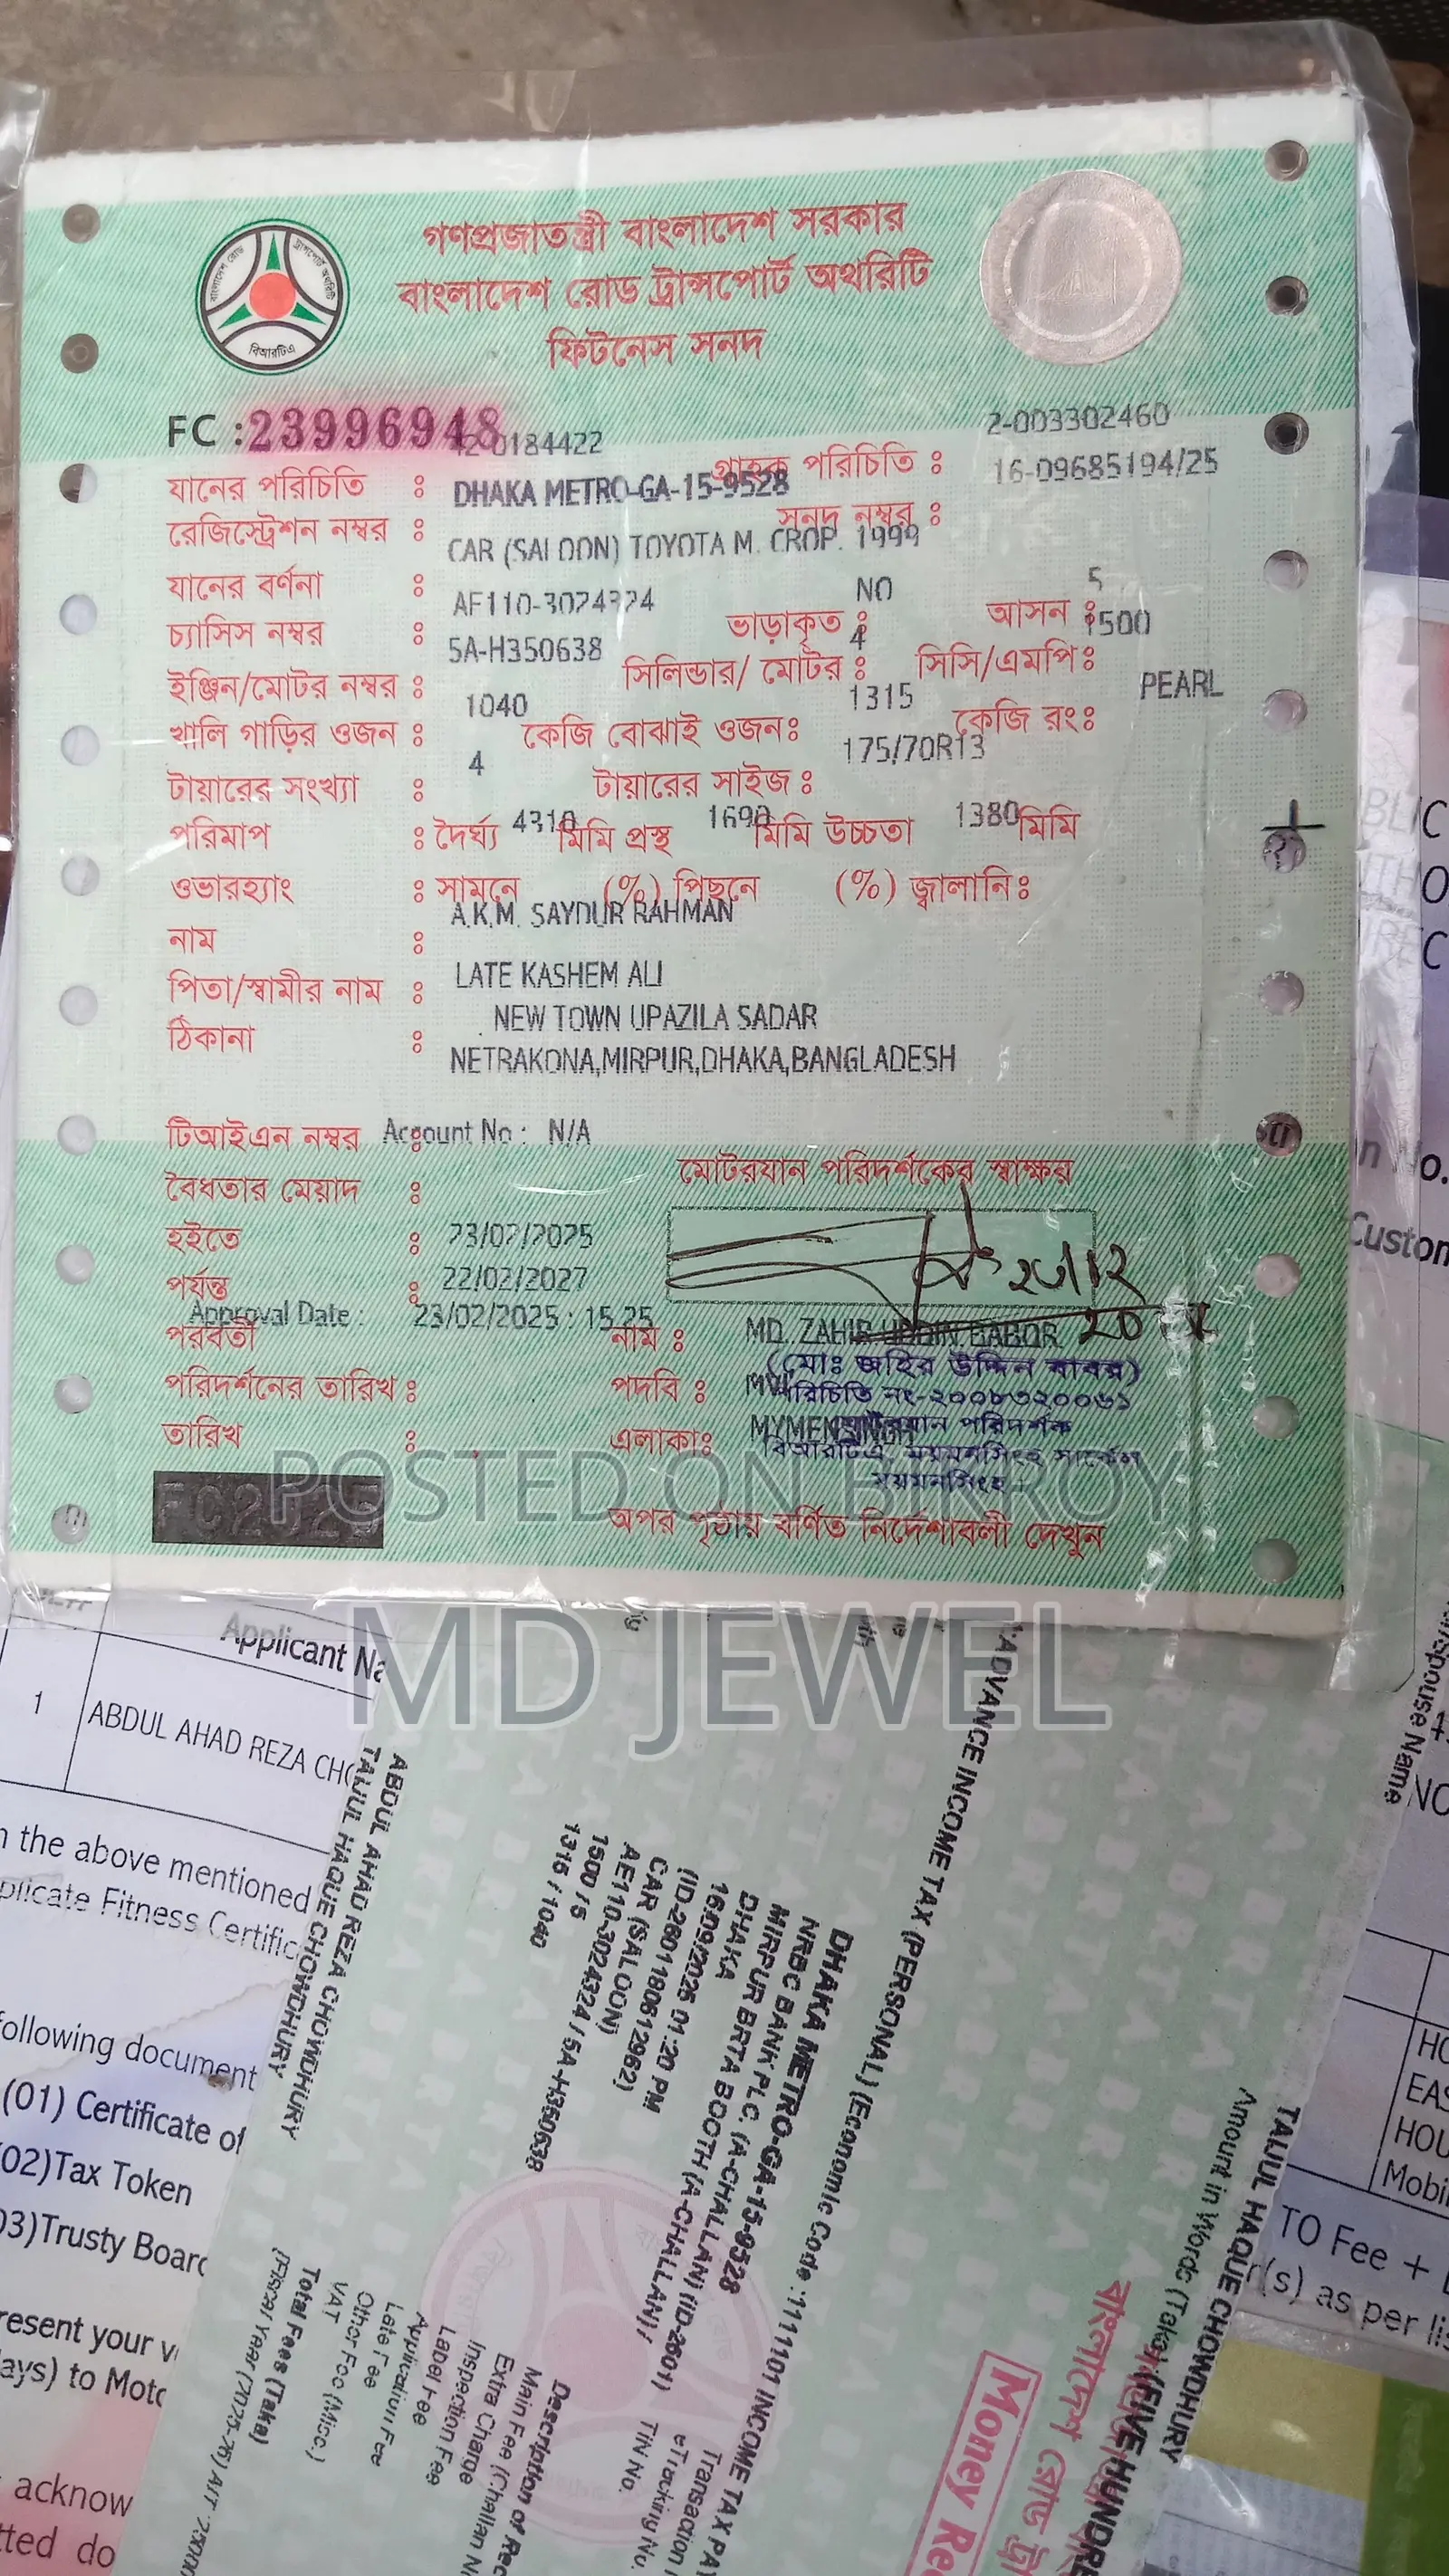 গণপ্রজাতন্ত্রী বাংলাদেশ সরকার
বাংলাদেশ রোড ট্রান্সপোর্ট অথরিটি
ফিটনেস সনদ
বাংলাদেশ রোড ট্রান্সপোর্ট অথরিটি
বিআরটিএ
FC : 23996948
42-0184422
2-003302460
যানের পরিচিতি :
গ্রাহক পরিচিতি :
16-09685194/25
রেজিস্ট্রেশন নম্বর : DHAKA METRO-GA-15-9528
সনদ নম্বর :
যানের বর্ণনা : CAR (SALOON) TOYOTA M. CROP. 1999
চ্যাসিস নম্বর : AE110-3024324 ভাড়াকৃত : NO আসন : 5
ইঞ্জিন/মোটর নম্বর : 5A-H350638 সিলিন্ডার/ মোটর : 4 সিসি/এমপি : 1500
খালি গাড়ির ওজন : 1040 কেজি বোঝাই ওজন : 1315 কেজি রং : PEARL
টায়ারের সংখ্যা : 4 টায়ারের সাইজ : 175/70R13
পরিমাপ : দৈর্ঘ্য 4310 মিমি প্রস্থ 1690 মিমি উচ্চতা 1380 মিমি
ওভারহ্যাং : সামনে (%) পিছনে (%) জ্বালানি :
নাম : A.K.M. SAYDUR RAHMAN
পিতা/স্বামীর নাম : LATE KASHEM ALI
ঠিকানা : NEW TOWN UPAZILA SADAR
NETRAKONA,MIRPUR,DHAKA,BANGLADESH
টিআইএন নম্বর : Account No : N/A
বৈধতার মেয়াদ :
মোটরযান পরিদর্শকের স্বাক্ষর
হইতে : 23/02/2025
পর্যন্ত : 22/02/2027
Approval Date : 23/02/2025 : 15.25
পরবর্তী
পরিদর্শনের তারিখ :
তারিখ :
নাম : MD. ZAHIR UDDIN BABOR
(মোঃ জহির উদ্দিন বাবর)
পদবি :
পরিচিতি নং-২০০৮৩২০০৬১
এলাকা : MYMENSINGH
মোটরযান পরিদর্শক
বিআরটিএ, ময়মনসিংহ সার্কেল
ময়মনসিংহ
FC2025
অপর পৃষ্ঠায় বর্ণিত নির্দেশাবলী দেখুন
POSTED ON BIKROY
MD JEWEL
Applicant
1 ABDUL AHAD REZA
the above mentioned
Fitness
following document
(01) Certificate of
02)Tax Token
03)Trusty
present your
days) to
acknow
ABDUL AHAD REZA CHOWDHURY
TAIJUL HAQUE CHOWDHURY
ADVANCE INCOME TAX (PERSONAL) (Economic Code :1111101 INCOME TAX
DHAKA METRO-GA-15-9528
NRBC BANK PLC. (A-CHALLAN) (ID-2601)
MIRPUR BRTA BOOTH (A-CHALLAN) /
DHAKA
16/09/2025 01:20 PM
(ID-2601180612962)
CAR (SALOON)
AE110-3024324 / 5A-H350638
1500 / 5
1315 / 1040
Transaction
eTracking No.
TIN No.
Description of
Main Fee (Challan
Extra Charge
Inspection Fee
Label Fee
Application Fee
Late Fee
Other Fee (Misc.)
VAT
Total Fees (Taka)
TAIJUL HAQUE CHOWDHURY
Amount in Words (Taka)
বাংলাদেশ রোড
Money
Spouse Name
TO Fee +
r(s) as per